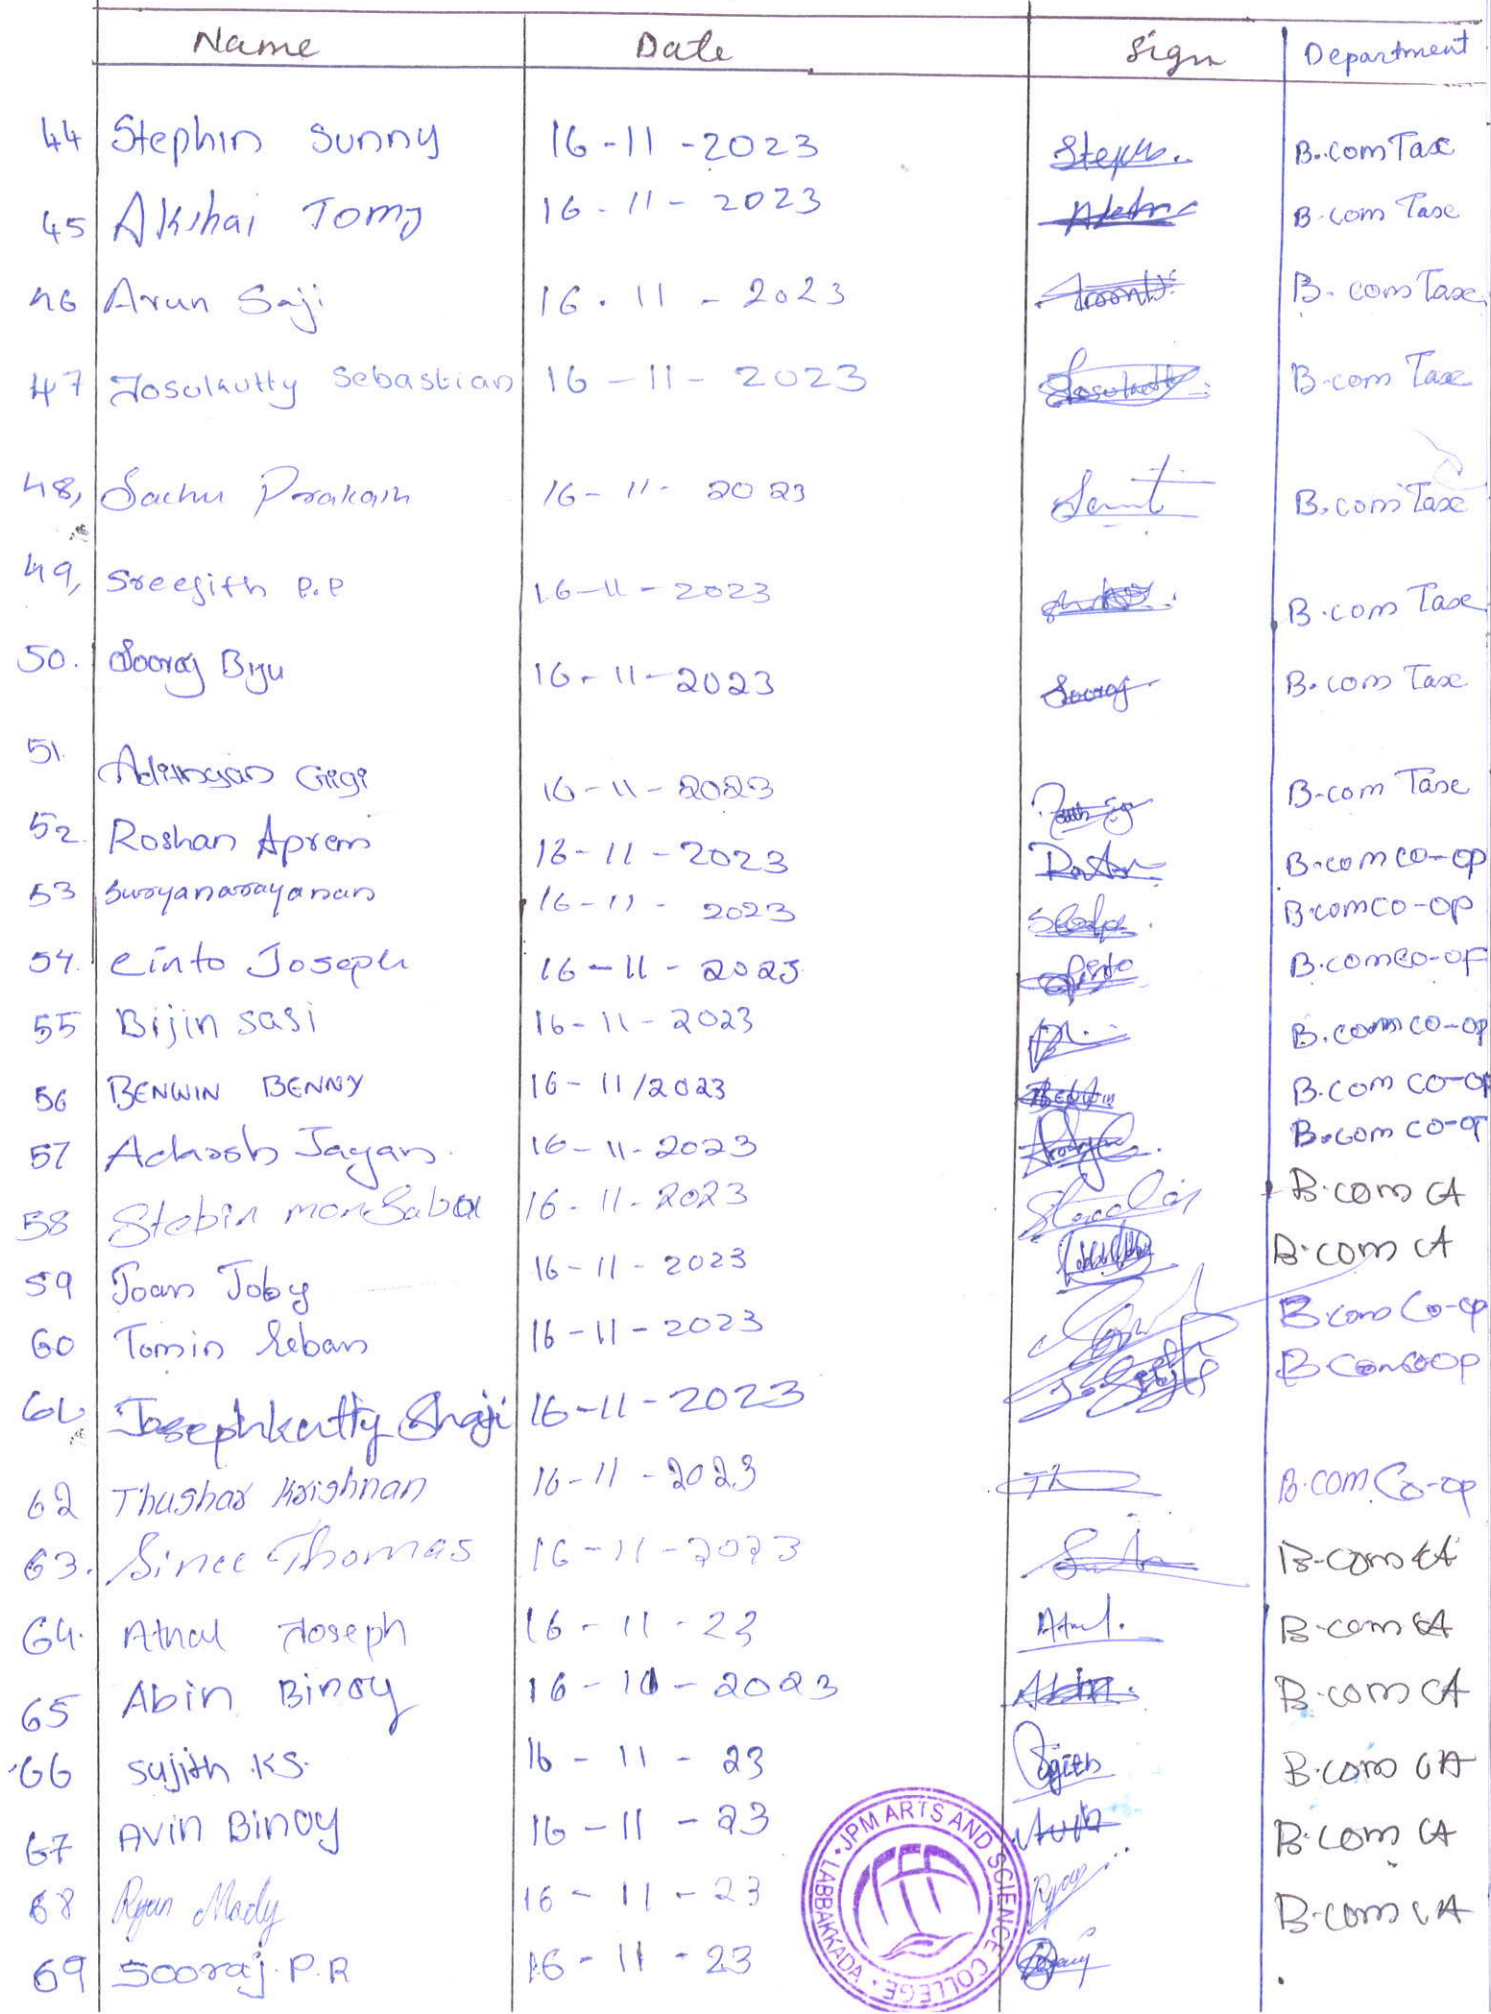 Name Date Sign Department
44 Stephin Sunny 16-11-2023 Steph. B.com Tax
45 Akshai Tomy 16-11-2023 B.com Tax
46 Arun Saji 16.11-2023 B.com Tax
47 Josulkutty Sebastian 16-11-2023 B.com Tax
48, Sachu Prakash 16-11-2023 B.com Tax
49, Sreejith P.P 16-11-2023 B.com Tax
50. Sooraj Biju 16-11-2023 Sooraj B.com Tax
51. Adithyan Gigi 16-11-2023 B.com Tax
52. Roshan Aprem 16-11-2023 B.com co-op
53 Suryanarayanan 16-11-2023 B.com co-op
54. Cinto Joseph 16-11-2023 B.com co-op
55 Bijin sasi 16-11-2023 B.com co-op
56 BENWIN BENNY 16-11/2023 Benwin B.com co-op
57 Adarsh Jayan. 16-11-2023 B.com co-op
58 Stebin mon Sabu 16-11-2023 B.com CA
59 Joan Joby 16-11-2023 B.com CA
60 Tomin Seban 16-11-2023 B.com Co-op
61. Josephkutty Shaji 16-11-2023 B Com coop
62 Thushar Krishnan 16-11-2023 B.com Co-op
63. Since Thomas 16-11-2023 B.com CA
64. Athul Joseph 16-11-23 Athul. B.com CA
65 Abin Binoy 16-11-2023 Abin. B.com CA
66 Sujith .K.S. 16-11-23 B.com CA
67 AVin Binoy 16-11-23 B.com CA
68 Ryan Mady 16-11-23 Ryan B.com CA
69 Sooraj. P.R 16-11-23
JPM ARTS AND SCIENCE COLLEGE • LABBAKKADA •